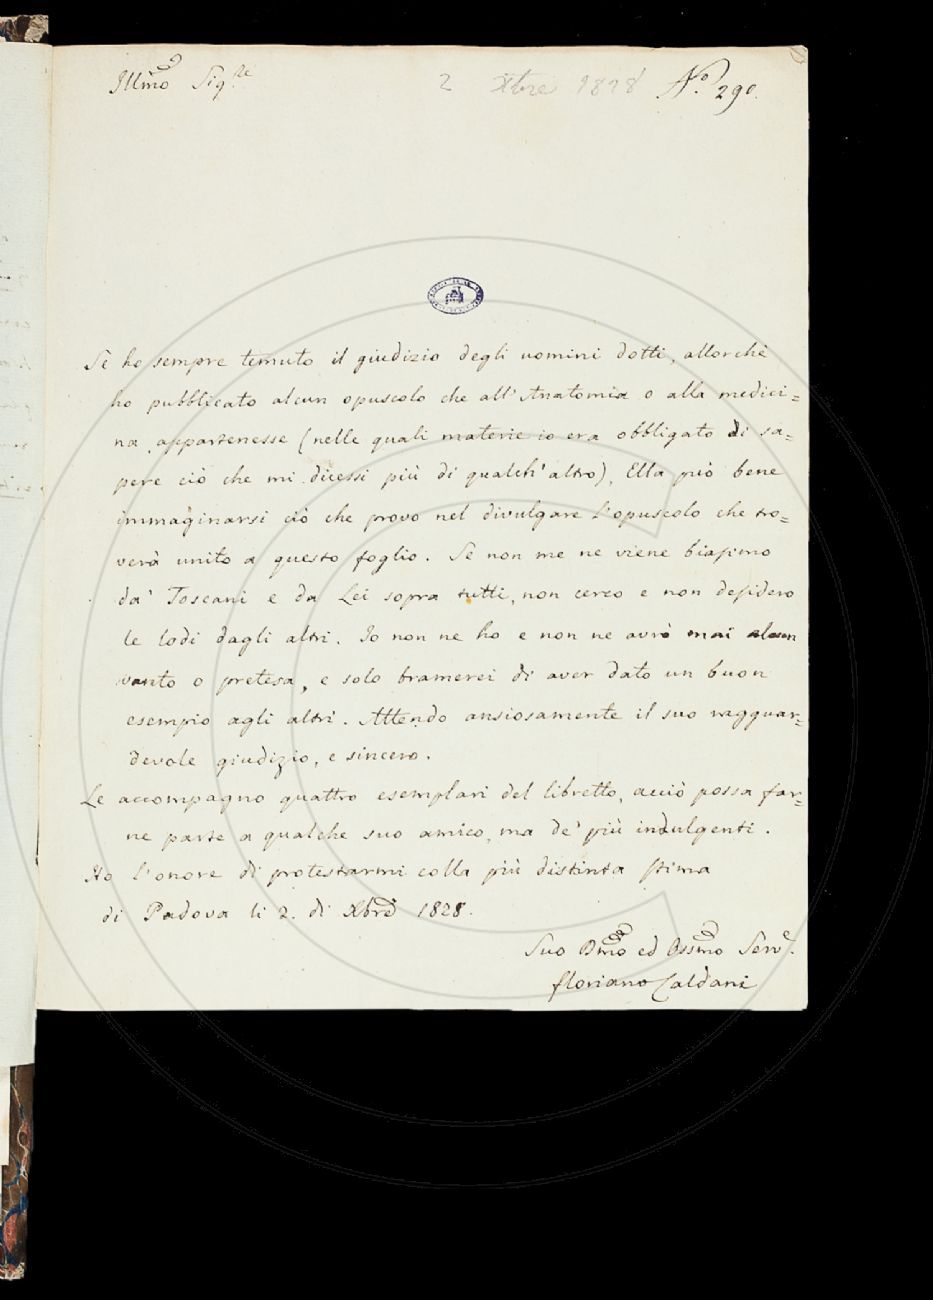 Illmo Sigre
2 Xbre 1828 No. 290.
Sè ho sempre temuto il giudizio degli uomini dotti, allorchè
ho pubblicato alcun opuscolo che all'Anatomia o alla medici=
na appartenesse (nelle quali materie io era obbligato di sa=
pere ciò che mi dicessi più di qualch'altro), Ella può bene
immaginarsi ciò che provo nel divulgare l'opuscolo che tro=
verà unito a questo foglio. Se non me ne viene biasimo
da' Toscani e da Lei sopra tutti, non cerco e non desidero
le lodi dagli altri. Io non ne ho e non ne avrò mai alcun
vanto o pretesa, e solo bramerei di aver dato un buon
esempio agli altri. Attendo ansiosamente il suo ragguar=
devole giudizio, e sincero.
Le accompagno quattro esemplari del libretto, acciò possa far=
ne parte a qualche suo amico, ma de' più indulgenti.
Ho l'onore di protestarmi colla più distinta stima
di Padova li 2. di Xbre 1828.
Suo Dmo ed Ossmo Serve.
floriano Caldani